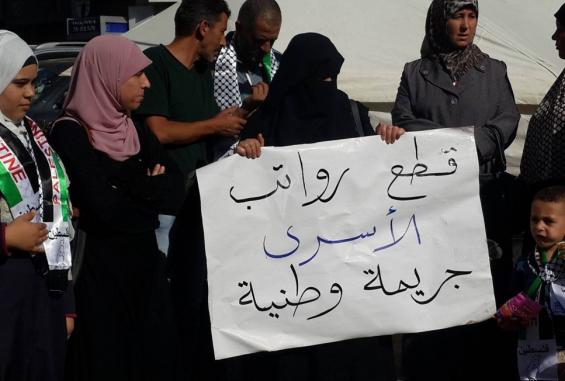 قطع رواتب
الأسرى
جريمة وطنية
TINE
فلسطين